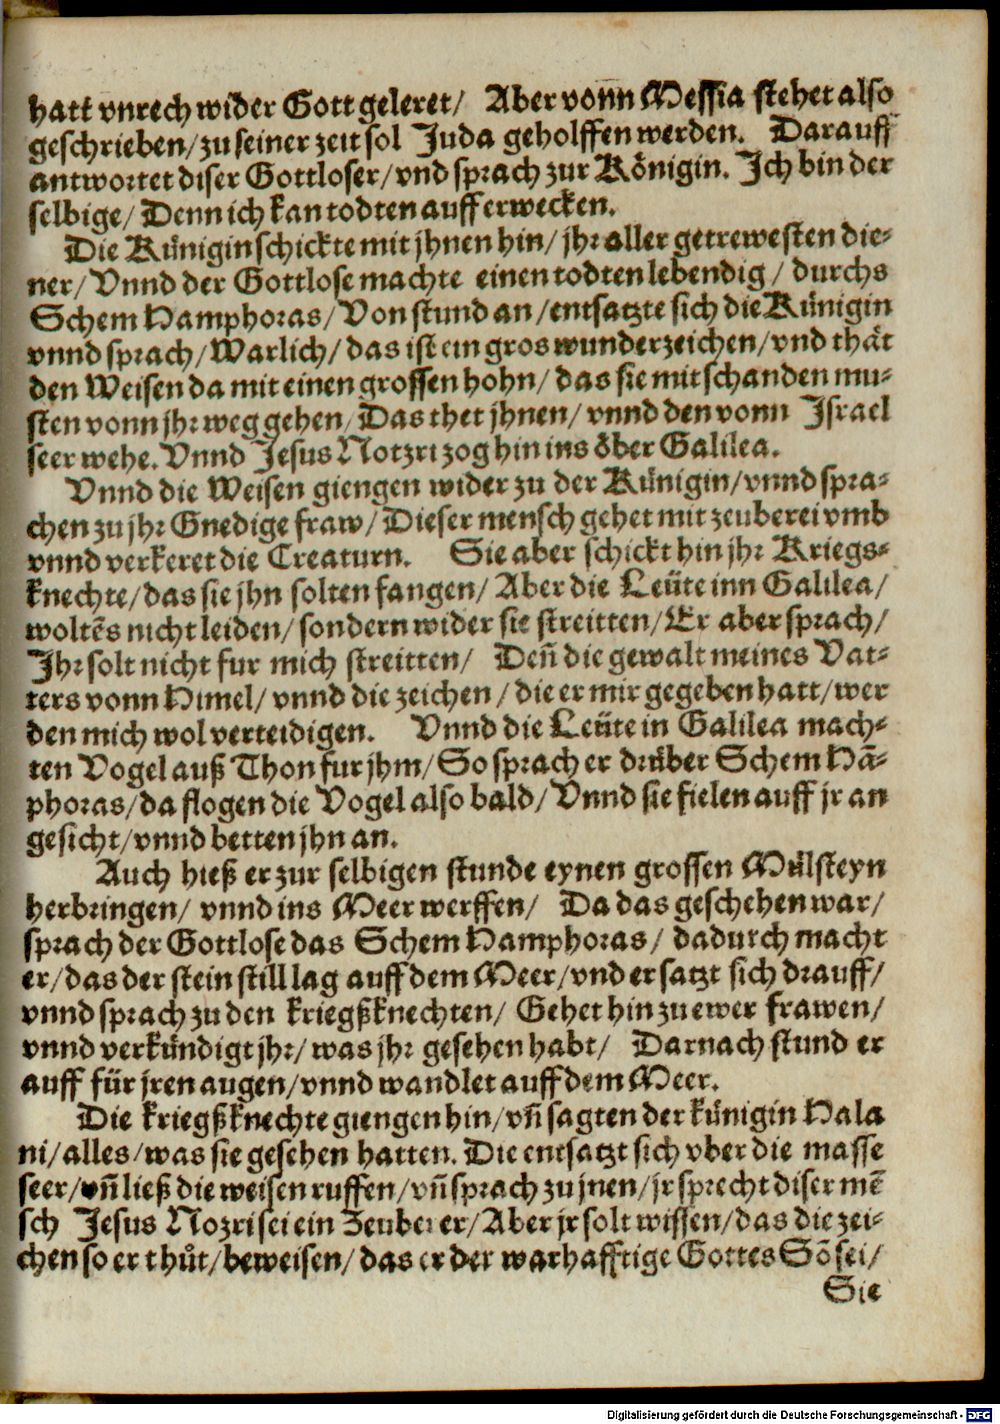 hatt vnrech wider Gott geleret/ Aber vonn Messia stehet also
geschrieben/ zu seiner zeit sol Juda geholffen werden. Darauff
antwortet diser Gottloser/ vnd sprach zur Königin. Jch bin der
selbige/ Denn ich kan todten aufferwecken.
Die Küniginschickte mit jhnen hin/ jhr aller getrewesten die-
ner/ Vnnd der Gottlose machte einen todten lebendig/ durchs
Schem Hamphoras/ Von stund an/ entsatzte sich die Künigin
vnnd sprach/ Warlich/ das ist ein gros wunderzeichen/ vnd thät
den Weisen da mit einen grossen hohn/ das sie mit schanden mu-
sten vonn jhr weg gehen/ Das thet jhnen/ vnnd den vonn Israel
seer wehe. Vnnd Jesus Notzri zog hin ins öber Galilea.
Vnnd die Weisen giengen wider zu der Künigin/ vnnd spra-
chen zu jhr Gnedige fraw/ Dieser mensch gehet mit zeuberei vmb
vnnd verkeret die Creaturn. Sie aber schickt hin jhr Kriegs-
knechte/ das sie jhn solten fangen/ Aber die Leüte inn Galilea/
woltēs nicht leiden/ sondern wider sie streitten/ Er aber sprach/
Jhr solt nicht fur mich streitten/ Deñ die gewalt meines Vat-
ters vonn Himel/ vnnd die zeichen/ die er mir gegeben hatt/ wer
den mich wol verteidigen. Vnnd die Leüte in Galilea mach-
ten Vogel auß Thon fur jhm/ So sprach er drüber Schem Hā-
phoras/ da flogen die Vogel also bald/ Vnnd sie fielen auff jr an
gesicht/ vnnd betten jhn an.
Auch hieß er zur selbigen stunde eynen grossen Mülsteyn
herbringen/ vnnd ins Meer werffen/ Da das geschehen war/
sprach der Gottlose das Schem Hamphoras/ dadurch macht
er/ das der stein still lag auff dem Meer/ vnd er satzt sich drauff/
vnnd sprach zu den kriegßknechten/ Gehet hin zu ewer frawen/
vnnd verkündigt jhr/ was jhr gesehen habt/ Darnach stund er
auff für jren augen/ vnnd wandlet auff dem Meer.
Die kriegßknechte giengen hin/ vñ sagten der künigin Hala
ni/ alles/ was sie gesehen hatten. Die entsatzt sich vber die masse
seer/ vñ ließ die weisen ruffen/ vñ sprach zu jnen/ jr sprecht diser mē
sch Jesus Nozri sei ein Zeuberer/ Aber jr solt wissen/ das die zei-
chen so er thůt/ beweisen/ das er der warhafftige Gottes Sō sei/
Sie
Digitalisierung gefördert durch die Deutsche Forschungsgemeinschaft - DFG